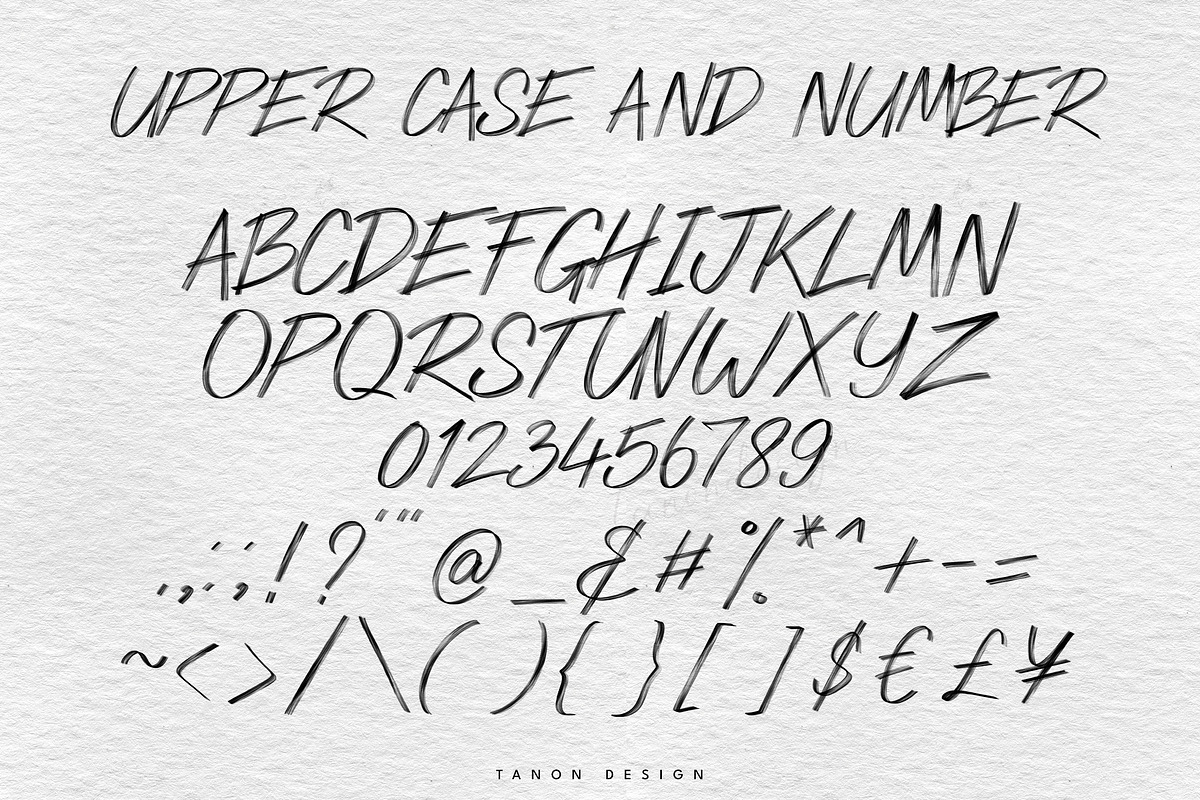 UPPER CASE AND NUMBER
ABCDEFGHIJKLMN
OPQRSTUVWXYZ
0123456789
.,:;!?'"@_&#%*^+-=
~<>/\(){}[]$€£¥
TANON DESIGN